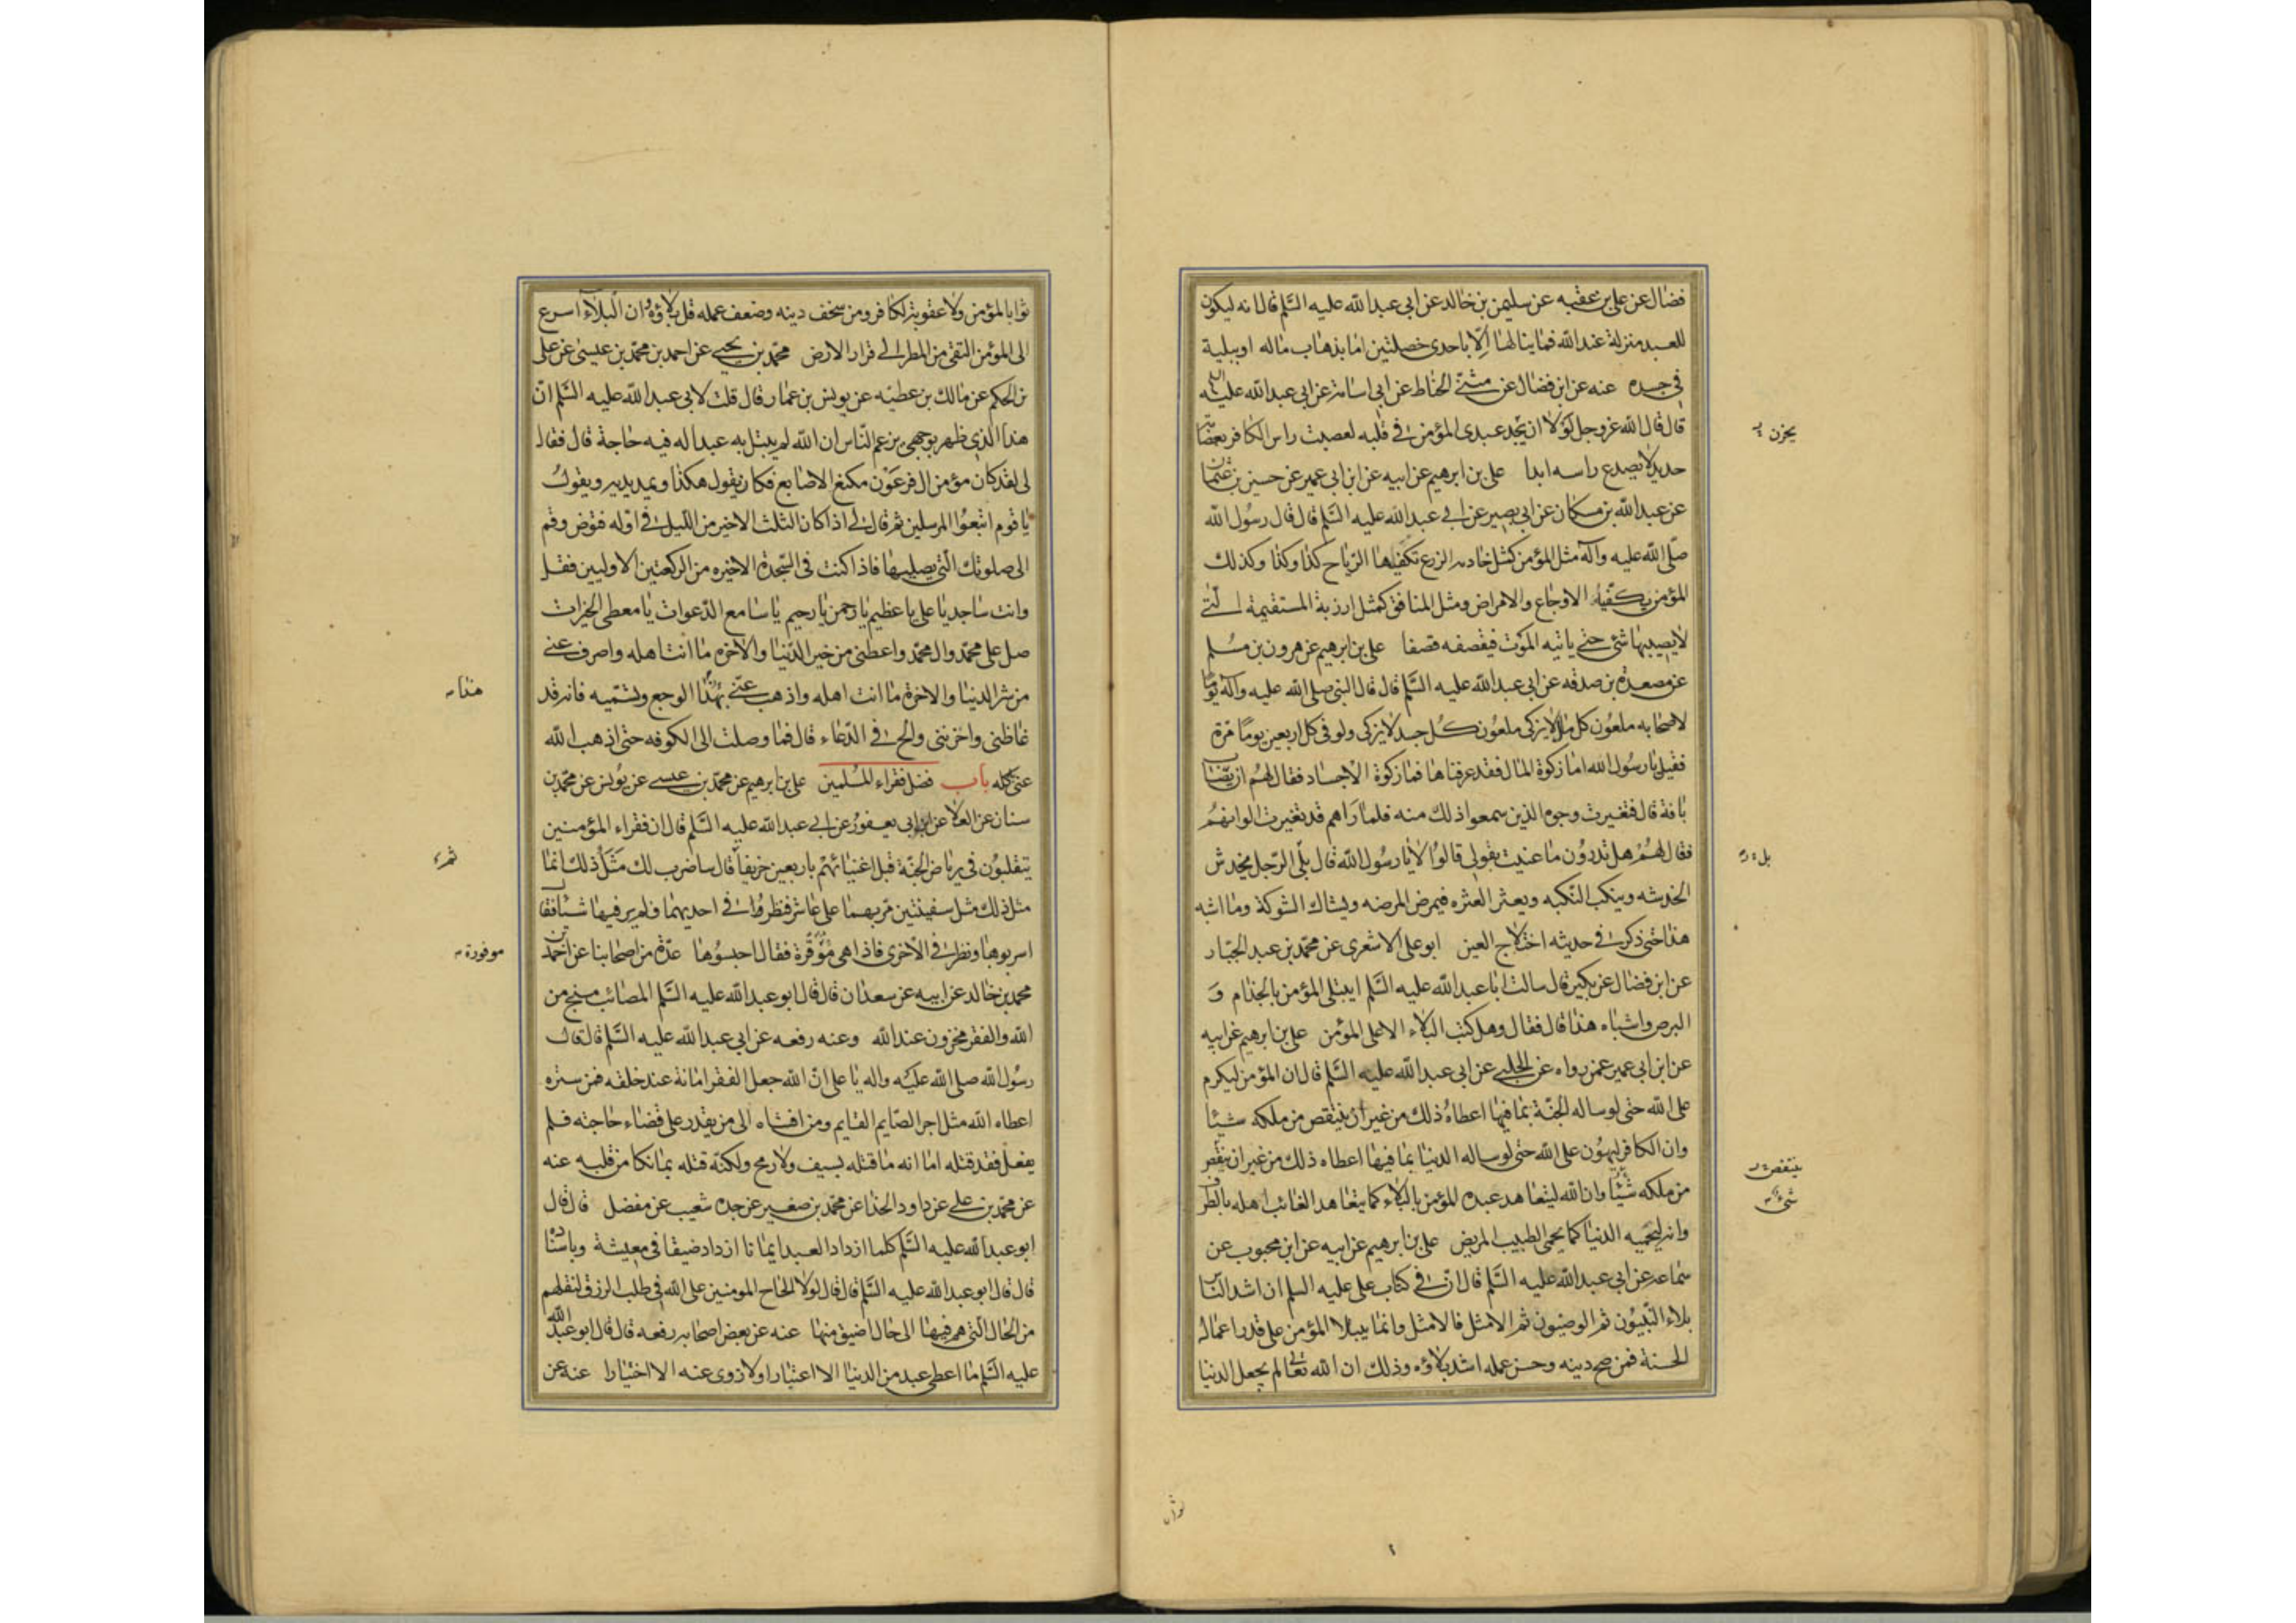 فضال عن علي بن عقبه عن سليمن بن خالد عن ابي عبد الله عليه السلم قال انه ليكون
للعبد منزلة عند الله فما ينالها الا باحدى خصلتين اما بذهاب ماله او ببلية
في جسده عنه عن ابن فضال عن مثنى الحناط عن ابي اسامة عن ابي عبد الله عليه السلم
قال قال الله عز وجل لولا ان يجد عبدى المؤمن في قلبه لعصبت راس الكافر بعصابة
حديد لا يصدع راسه ابدا علي بن ابرهيم عن ابيه عن ابن ابي عمير عن حسين بن عثمان
عن عبد الله بن مسكان عن ابي بصير عن ابي عبد الله عليه السلم قال قال رسول الله
صلى الله عليه وآله مثل المؤمن كمثل خامة الزرع تكفيها الرياح كذا وكذا وكذلك
المؤمن يكفيه الاوجاع والامراض ومثل المنافق كمثل ارزبة المستقيمة التي
لا يصيبها شئ حتى ياتيه الموت فيقصفه قصفا علي بن ابرهيم عن هرون بن مسلم
عن مصعدة بن صدقه عن ابي عبد الله عليه السلم قال قال النبي صلى الله عليه وآله يوما
لاصحابه ملعون كل مال لا يزكى ملعون كل جسد لا يزكى ولو في كل اربعين يوما مرة
فقيل يا رسول الله اما زكوة المال فقد عرفناها فما زكوة الاجساد فقال لهم ان يصاب
بافة قال فتغيرت وجوه الذين سمعوا ذلك منه فلما راهم قد تغيرت الوانهم
فقال لهم هل تدرون ما عنيت بقولي قالوا لا يا رسول الله قال بلى الرجل يخدش
الخدشه وينكب النكبه ويعثر العثره فيمرض المرضه ويشاك الشوكة وما اشبه
هذا حتى ذكر في حديثه اختلاج العين ابو علي الاشعرى عن محمد بن عبد الجبار
عن ابن فضال عن بكير قال سالت ابا عبد الله عليه السلم ايبتلى المؤمن بالجذام و
البرص واشباه هذا قال فقال وهل كتب البلاء الا على المؤمن علي بن ابرهيم عن ابيه
عن ابن ابي عمير عمن رواه عن الحلبي عن ابي عبد الله عليه السلم قال ان المؤمن ليكرم
على الله حتى لو ساله الجنة بما فيها اعطاه ذلك من غير ان ينتقص من ملكه شيئا
وان الكافر ليهون على الله حتى لو ساله الدنيا بما فيها اعطاه ذلك من غير ان ينتقص
من ملكه شيئا وان الله ليتعاهد عبده المؤمن بالبلاء كما يتعاهد الغائب اهله بالطرف
وانه ليحميه الدنيا كما يحمى الطبيب المريض علي بن ابرهيم عن ابيه عن ابن محبوب عن
سماعه عن ابي عبد الله عليه السلم قال ان في كتاب علي عليه السلم ان اشد الناس
بلاء النبيون ثم الوصيون ثم الامثل فالامثل وانما يبتلا المؤمن على قدر اعماله
الحسنة فمن صح دينه وحسن عمله اشتد بلاؤه وذلك ان الله تعالى لم يجعل الدنيا
يحزن
بل
ينتقص
شئ
ثوابا
ثوابا للمؤمن ولا عقوبة لكافر ومن سخف دينه وضعف عمله قل بلاؤه وان البلاء اسرع
الى المؤمن التقى من المطر الى قرار الارض محمد بن يحيى عن احمد بن محمد بن عيسى عن علي
بن الحكم عن مالك بن عطيه عن يونس بن عمار قال قلت لابي عبد الله عليه السلم ان
هذا الذي ظهر بوجهي يزعم الناس ان الله لم يبتل به عبدا له فيه حاجة قال فقال
لي لقد كان مؤمن ال فرعون مكنع الاصابع فكان يقول هكذا ويمد يديه ويقول
يا قوم اتبعوا المرسلين ثم قال لي اذا كان الثلث الاخير من الليل في اوله فتوض وقم
الى صلوتك التي يصليها فاذا كنت في السجدة الاخيره من الركعتين الاوليين فقل
وانت ساجد يا علي يا عظيم يا رحمن يا رحيم يا سامع الدعوات يا معطي الخيرات
صل على محمد وال محمد واعطني من خير الدنيا والآخرة ما انت اهله واصرف عني
من شر الدنيا والاخرة ما انت اهله واذهب عني بهذا الوجع وتسميه فانه قد
غاظني واحزنني والح في الدعاء قال فما وصلت الى الكوفه حتى اذهب الله
عني كله باب فضل فقراء المسلمين علي بن ابرهيم عن محمد بن عيسى عن يونس عن محمد بن
سنان عن العلا عن ابن ابي يعفور عن ابي عبد الله عليه السلم قال ان فقراء المؤمنين
يتقلبون في رياض الجنة قبل اغنيائهم باربعين خريفا قال ساضرب لك مثل ذلك انما
مثل ذلك مثل سفينتين مر بهما على عاشر فنظر في احديهما فلم ير فيها شيئا فقال
اسربوها ونظر في الاخرى فاذا هي موقرة فقال احبسوها عدة من اصحابنا عن احمد بن
محمد بن خالد عن ابيه عن سعدان قال قال ابو عبد الله عليه السلم المصائب منح من
الله والفقر مخزون عند الله وعنه رفعه عن ابي عبد الله عليه السلم قال قال
رسول الله صلى الله عليه واله يا علي ان الله جعل الفقر امانة عند خلقه فمن ستره
اعطاه الله مثل اجر الصايم القايم ومن افشاه الى من يقدر على قضاء حاجته فلم
يفعل فقد قتله اما انه ما قتله بسيف ولا رمح ولكنه قتله بما نكا من قلبه عنه
عن محمد بن علي عن داود الحذا عن محمد بن صغير عن جده شعيب عن مفضل قال قال
ابو عبد الله عليه السلم كلما ازداد العبد ايمانا ازداد ضيقا في معيشة وباسناده
قال قال ابو عبد الله عليه السلم قال قال لولا الحاح المومنين على الله في طلب الرزق لنقلهم
من الحال التي هم فيها الى حال اضيق منها عنه عن بعض اصحابه رفعه قال قال ابو عبد الله
عليه السلم ما اعطي عبد من الدنيا الا اعتبارا ولا زوى عنه الا اختيارا عنه عن
هذا
ثم
موفورة